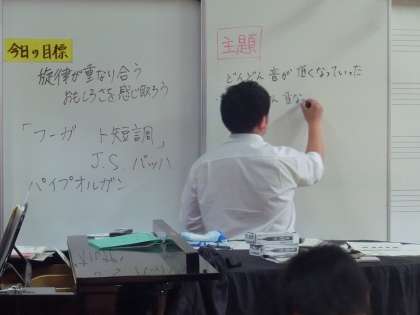 今日の目標
旋律が重なり合う
おもしろさを感じ取ろう
「フーガ ト短調」
J.S. バッハ
パイプオルガン
主題
どんどん音が低くなっていった